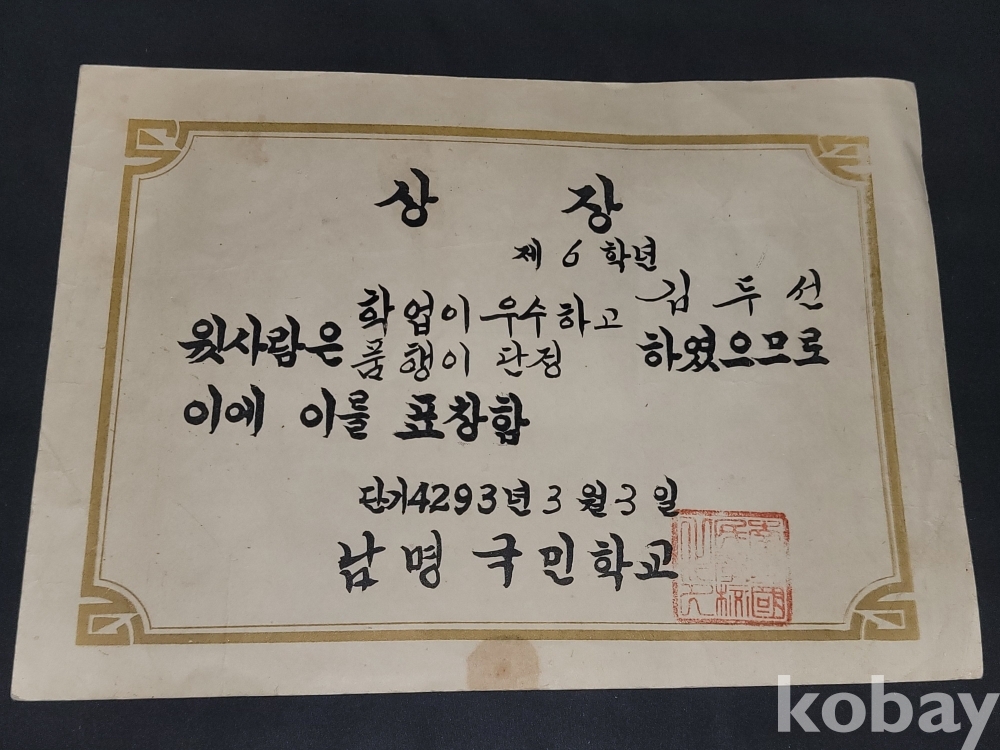 상 장
제 6 학년
김 두 선
윗사람은 학업이 우수하고 품행이 단정 하였으므로
이에 이를 표창함
단기4293년 3월 3일
남명 국민학교
kobay